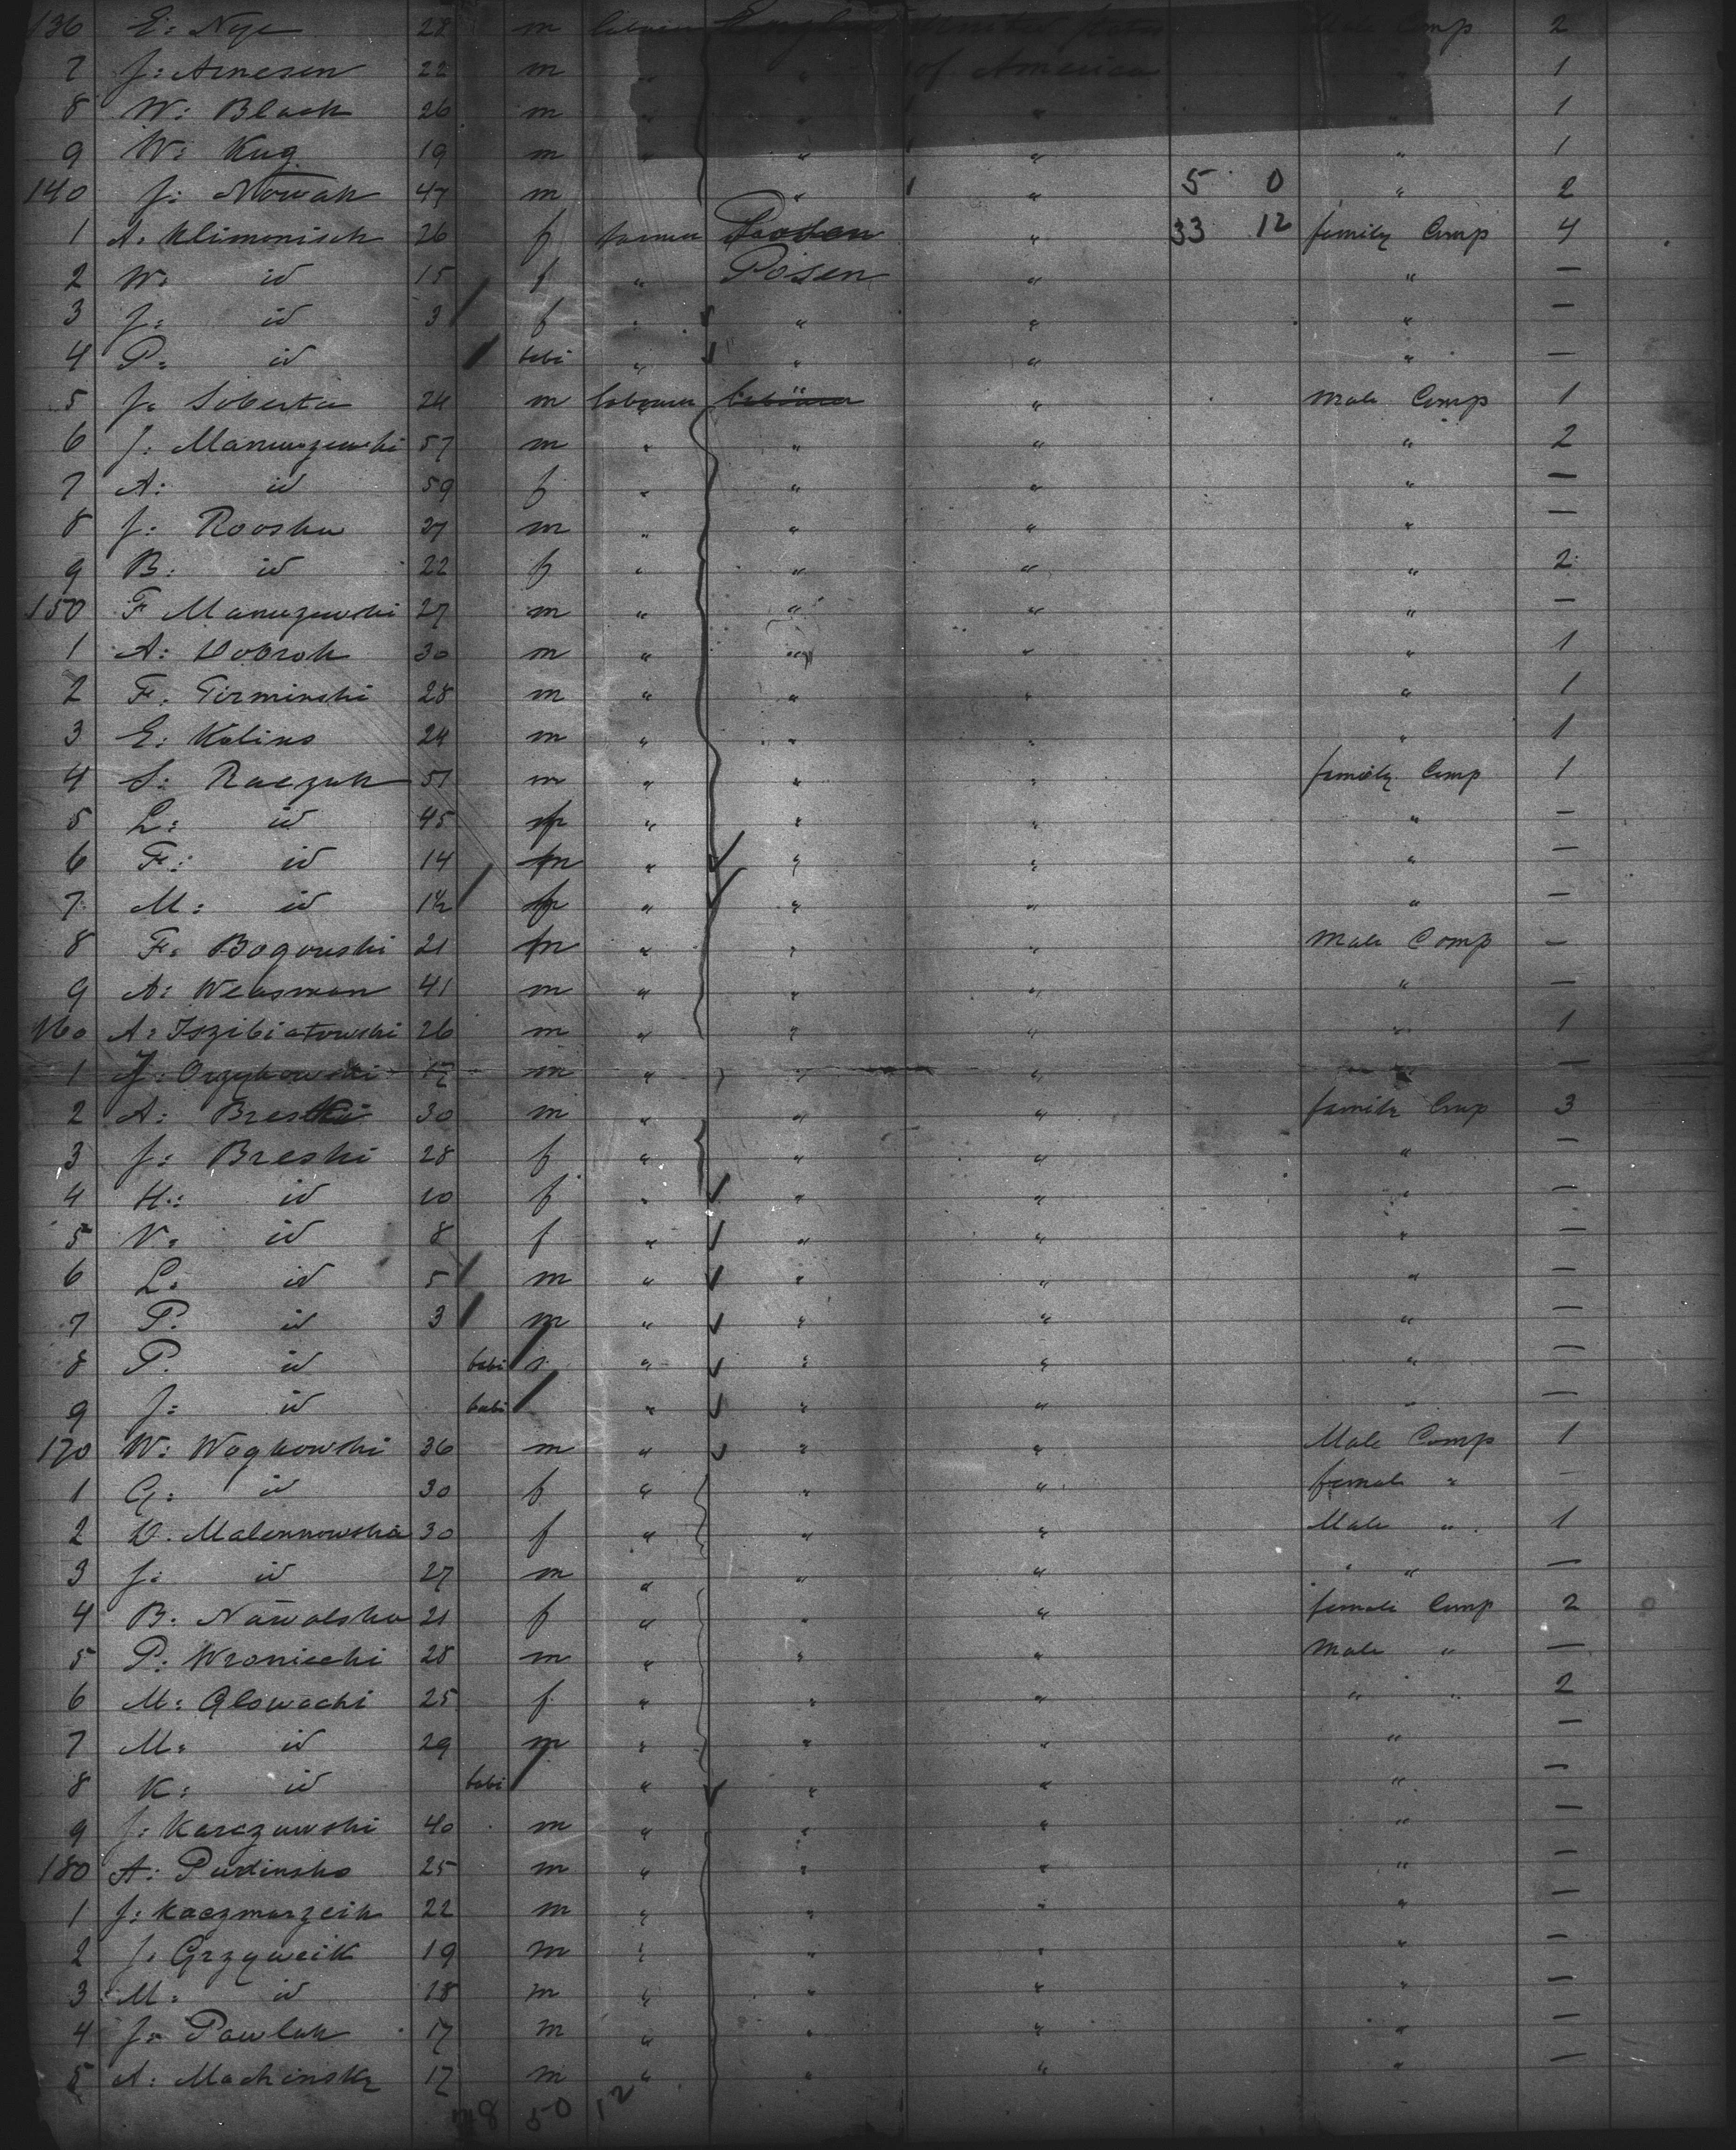 136 E: Nye 28 m labourer England United States Male Comp 2
7 J: Arnesen 22 m " " of America " 1
8 W: Black 26 m " " " " 1
9 W: Kug 19 m " " " " 1
140 J: Nowak 47 m " " 5 0 " 2
1 A. Klimonisch 26 f farmer " 33 12 family Comp 4
2 W: id 15 f " Posen " " —
3 J: id 3 f " " " " —
4 P: id babi " " " " —
5 J: Soberta 24 m labourer labourer " Male Comp 1
6 J: 57 m " " " " 2
7 A: id 59 f " " " " —
8 J: Rooska 27 m " " " " —
9 B: id 22 f " " " " 2
150 F 27 m " " " " —
1 A: Dobrok 30 m " " " " 1
2 F. Girminski 28 m " " " " 1
3 E: Kolins 24 m " " " " 1
4 S: Raczak 51 m " " " family Comp 1
5 L: id 45 f " " " " —
6 F: id 14 m " " " " —
7 M: id 1½ f " " " " —
8 F: Bogouski 21 m " " " Male Comp —
9 A: Weasman 41 m " " " " —
160 A: Iszibiatowski 26 m " " " " 1
1 J: Orzykowski 17 m " " " " —
2 A: Breski 30 m " " " family Comp 3
3 J: Breski 28 f " " " " —
4 H: id 10 f " " " " —
5 V: id 8 f " " " " —
6 L: id 5 m " " " " —
7 P. id 3 m " " " " —
8 P. id babi " " " " —
9 J: id babi " " " " —
170 W: Wogkowski 36 m " " " Male Comp 1
1 G: id 30 f " " " female " —
2 D. Malennowska 30 f " " " Male " 1
3 J: id 27 m " " " " " —
4 B: Nawalska 21 f " " " female Comp 2
5 P: Wroniecki 28 m " " " male " —
6 M: Glowacki 25 f " " " " " 2
7 M: id 29 m " " " " —
8 K: id babi " " " " —
9 J: Karczewski 40 m " " " " —
180 A: Purtinsko 25 m " " " " —
1 J: Kaczmarzeik 22 m " " " " —
2 J. Grzyweik 19 m " " " " —
3 M: id 18 m " " " " —
4 J: Pawlak 17 m " " " " —
5 A: Machinsky 17 m " " " " —
50 12